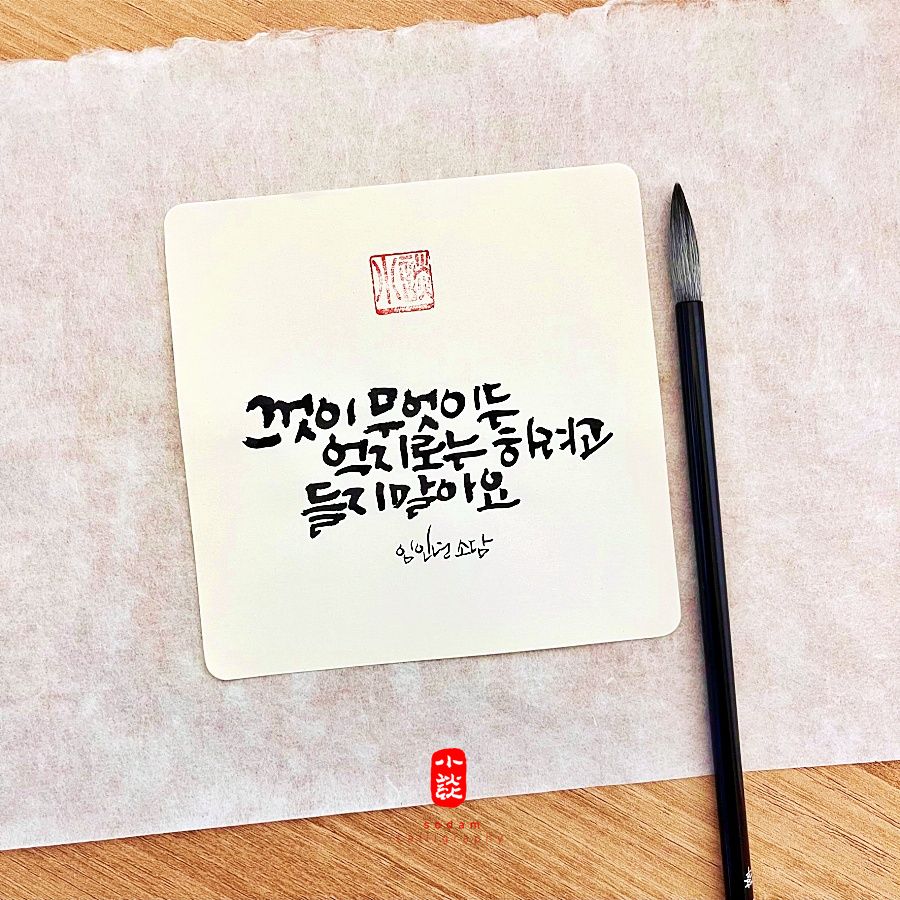 그것이 무엇이든
억지로는 하려고
들지말아요
임인년 소담
小談
sodam
calligraphy